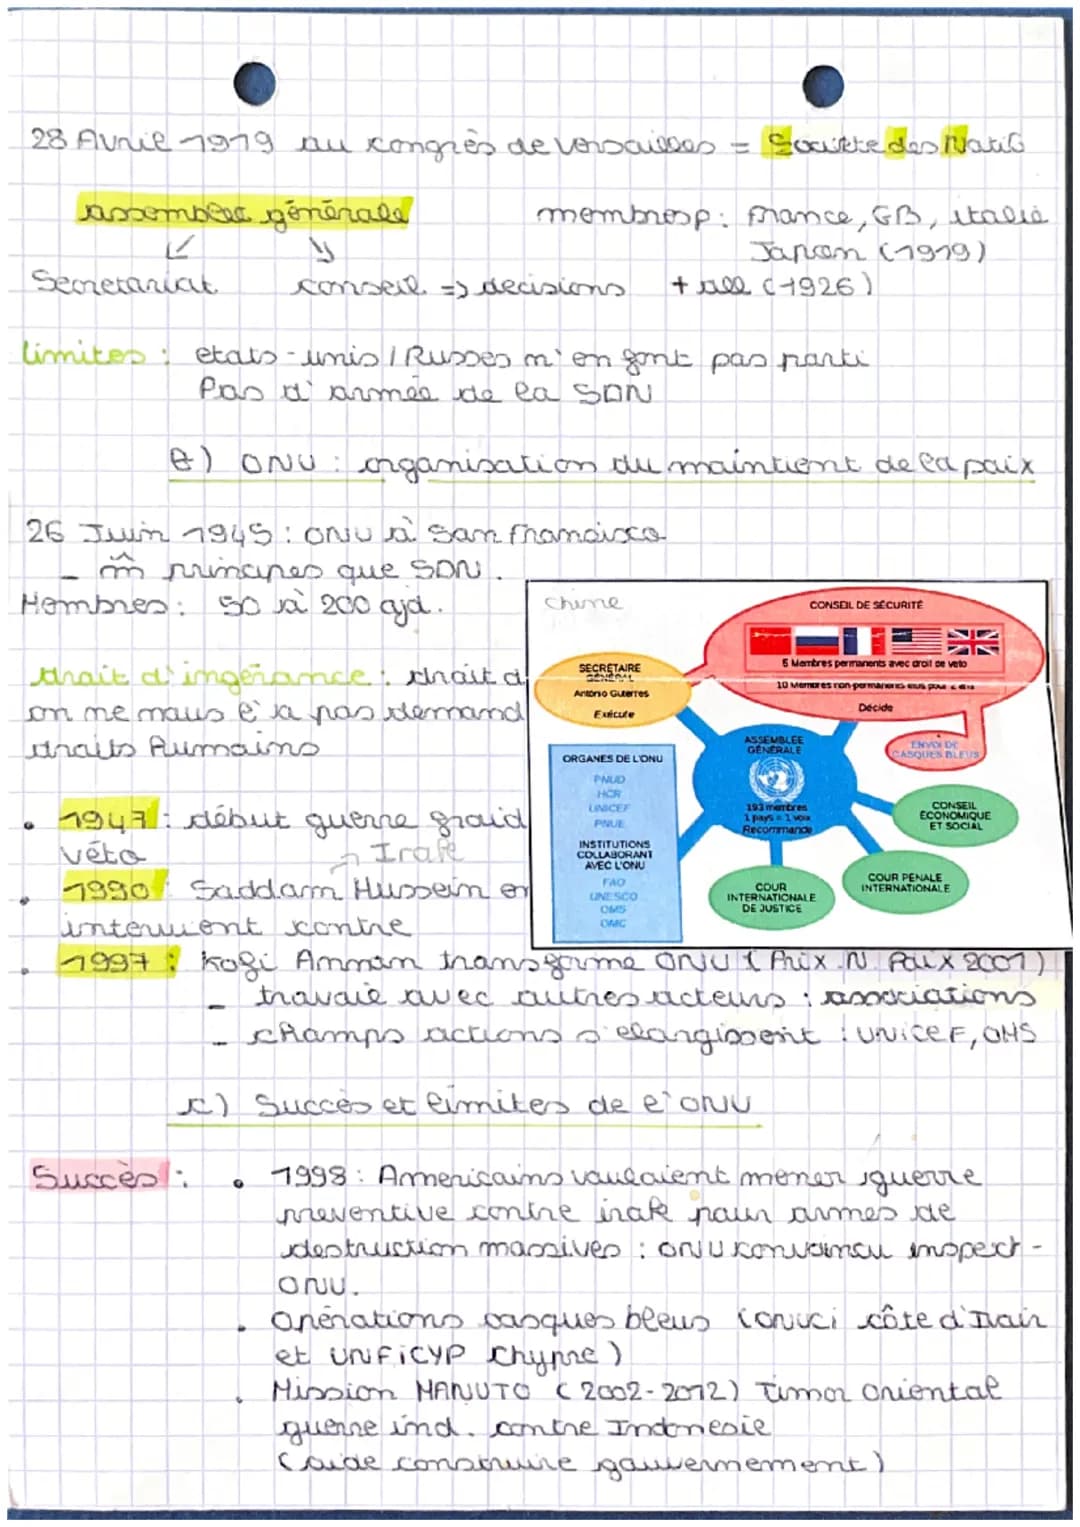 28 Avril 1919 au congrès de versailles = Société des Nati°
assemblée générale
membresp: France, GB, italie
Japon (1919)
Secretariat conseil => decisions + all (1926)
limites : etats-unis / Russes n'en font pas parti
Pas d'armée de la SDN
ONU : organisation du maintient de la paix
26 Juin 1945 : ONU à San Francisco
- m̂ principes que SDN.
Membres : 50 à 200 ajd.
droit d'ingérance : droit d
on ne nous l'a pas demand
droits humains
• 1947 : début guerre froid
véto
Irak
• 1990 : Saddam Hussein en
intervient contre
• 1997 : Kofi Annan transforme ONU (Prix N. Paix 2001)
- travail avec autres acteurs : associations
- champs actions s'elargissent : UNICEF, OMS
chine
CONSEIL DE SÉCURITÉ
5 Membres permanents avec droit de veto
10 Membres non-permanents élus pour 2 ans
Décide
SECRÉTAIRE
GÉNÉRAL
António Guterres
Exécute
ENVOI DE
CASQUES BLEUS
ASSEMBLÉE
GÉNÉRALE
193 membres
1 pays = 1 voix
Recommande
ORGANES DE L'ONU
PNUD
HCR
UNICEF
PNUE
INSTITUTIONS
COLLABORANT
AVEC L'ONU
FAO
UNESCO
OMS
OMC
CONSEIL
ÉCONOMIQUE
ET SOCIAL
COUR PENALE
INTERNATIONALE
COUR
INTERNATIONALE
DE JUSTICE
c) Succès et limites de l'ONU
Succès : • 1998 : Americains voulaient mener guerre
preventive contre irak pour armes de
destruction massives : ONU convaincu inspect-
ONU.
• Opérations casques bleus (onuci côte d'Ivoir
et UNFICYP Chypre)
• Mission MANUTO (2002-2012) Timor Oriental
guerre ind. contre Indonesie
(aide construire gouvernement)